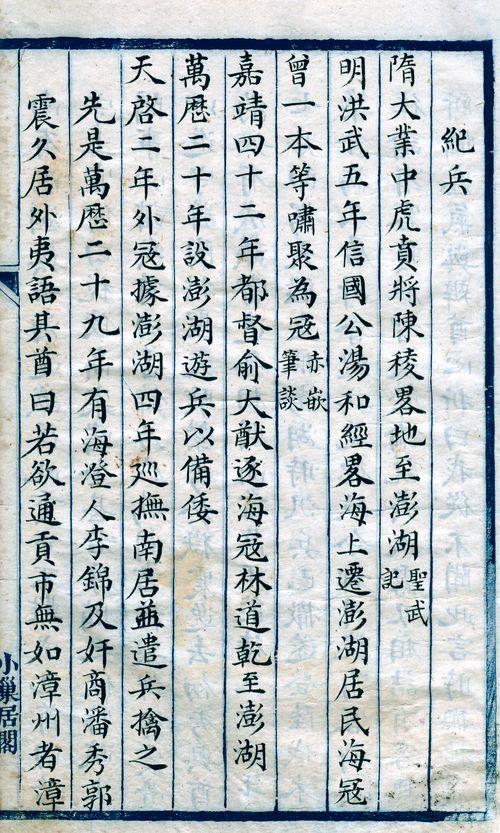 紀兵
隋大業中虎賁將陳稜畧地至澎湖聖武記
明洪武五年信國公湯和經畧海上遷澎湖居民海冦
曾一本等嘯聚為冦赤嵌筆談
嘉靖四十二年都督俞大猷逐海冦林道乾至澎湖
萬歷二十年設澎湖遊兵以備倭
天啓二年外冦據澎湖四年巡撫南居益遣兵擒之
先是萬歷二十九年有海澄人李錦及奸商潘秀郭
震久居外夷語其酋曰若欲通貢市無如漳州者漳
小巢居閣